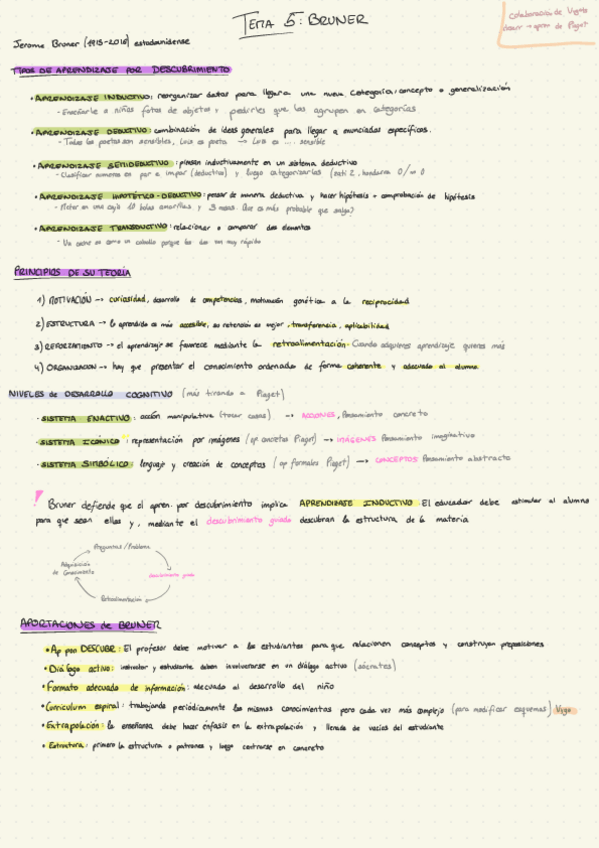 TEMA 5: BRUNER
colaboración de Vygots
desarr → apren de Piaget
Jerome Bruner (1915-2016) estadounidense
TIPOS DE APRENDIZAJE POR DESCUBRIMIENTO
• APRENDIZAJE INDUCTIVO: reorganizar datos para llegar a una nueva categoría, concepto o generalización
- Enseñarle a niños fotos de objetos y pedirles que las agrupen en categorías
• APRENDIZAJE DEDUCTIVO: combinación de ideas generales para llegar a enunciados específicos.
- Todos los poetas son sensibles, Luis es poeta → Luis es .... sensible
• APRENDIZAJE SEMIDEDUCTIVO: piensan inductivamente en un sistema deductivo
- Clasificar números en par e impar (deductivo) y luego categorizarlos
• APRENDIZAJE HIPOTÉTICO-DEDUCTIVO: pensar de manera deductiva y hacer hipótesis + comprobación de hipótesis
- Meter en una caja 10 bolas amarillas y 3 rosas. Que es más probable que salga?
• APRENDIZAJE TRANSDUCTIVO: relacionar o comparar dos elementos
- Un coche es como un caballo porque los dos son muy rápido
PRINCIPIOS DE SU TEORÍA
1) MOTIVACIÓN → curiosidad, desarrollo de competencias, motivación genética a la reciprocidad
2) ESTRUCTURA → lo aprendido es más accesible, su retención es mejor, transferencia, aplicabilidad
3) REFORZAMIENTO → el aprendizaje se favorece mediante la retroalimentación. Cuando adquieres aprendizaje quieres más
4) ORGANIZACIÓN → hay que presentar el conocimiento ordenados de forma coherente y adecuado al alumno
NIVELES de DESARROLLO COGNITIVO (más tirando a Piaget)
- SISTEMA ENACTIVO: acción manipulativa (tocar cosas) → ACCIONES, Pensamiento concreto
- SISTEMA ICÓNICO: representación por imágenes (op concretas Piaget) → IMÁGENES Pensamiento imaginativo
- SISTEMA SIMBÓLICO: lenguaje y creación de conceptos (op formales Piaget) → CONCEPTOS Pensamiento abstracto
! Bruner defiende que el apren. por descubrimiento implica APRENDIZAJE INDUCTIVO. El educador debe estimular al alumno
para que sean ellos y, mediante el descubrimiento guiado descubran la estructura de la materia
Preguntas/Problema
Adquisición
de Conocimiento
descubrimiento guiado
Retroalimentación
APORTACIONES de BRUNER
• Ap por DESCUBR: El profesor debe motivar a los estudiantes para que relacionen conceptos y construyan proposiciones
• Diálogo activo: instructor y estudiante deben involucrarse en un diálogo activo (sócrates)
• Formato adecuado de información: adecuado al desarrollo del niño
• Curriculum espiral: trabajando periódicamente los mismos conocimientos pero cada vez más complejo (para modificar esquemas) Vygo
• Extrapolación: la enseñanza debe hacer énfasis en la extrapolación y llenado de vacíos del estudiante
• Estructura: primero la estructura o patrones y luego centrarse en concreto